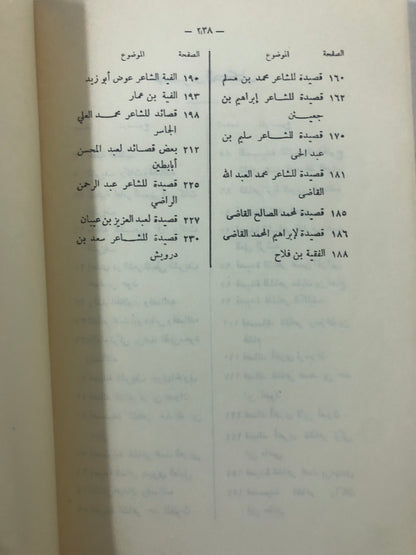 — ٢٣٨ —
الصفحة الموضوع
١٦٠ قصيدة للشاعر محمد بن مسلم
١٦٣ قصيدة للشاعر إبراهيم بن
جعيثن
١٧٠ قصيدة للشاعر سليم بن
عبد الحى
١٨١ قصيدة للشاعر محمد العبد الله
القاضى
١٨٥ قصيدة لمحمد الصالح القاضى
١٨٦ قصيدة لإبراهيم المحمد القاضى
١٨٨ الفقية بن فلاح
الصفحة الموضوع
١٩٠ الفية الشاعر عوض أبو زيد
١٩٣ الفية بن عمار
١٩٨ قصائد للشاعر محمد العلي
الجاسر
٢١٢ بعض قصائد لعبد المحسن
أبابطين
٢٢٥ قصيدة للشاعر عبد الرحمن
الراضي
٢٢٧ قصيدة لعبد العزيز بن عيبان
٢٣٠ قصيدة للشاعر سعد بن
درويش